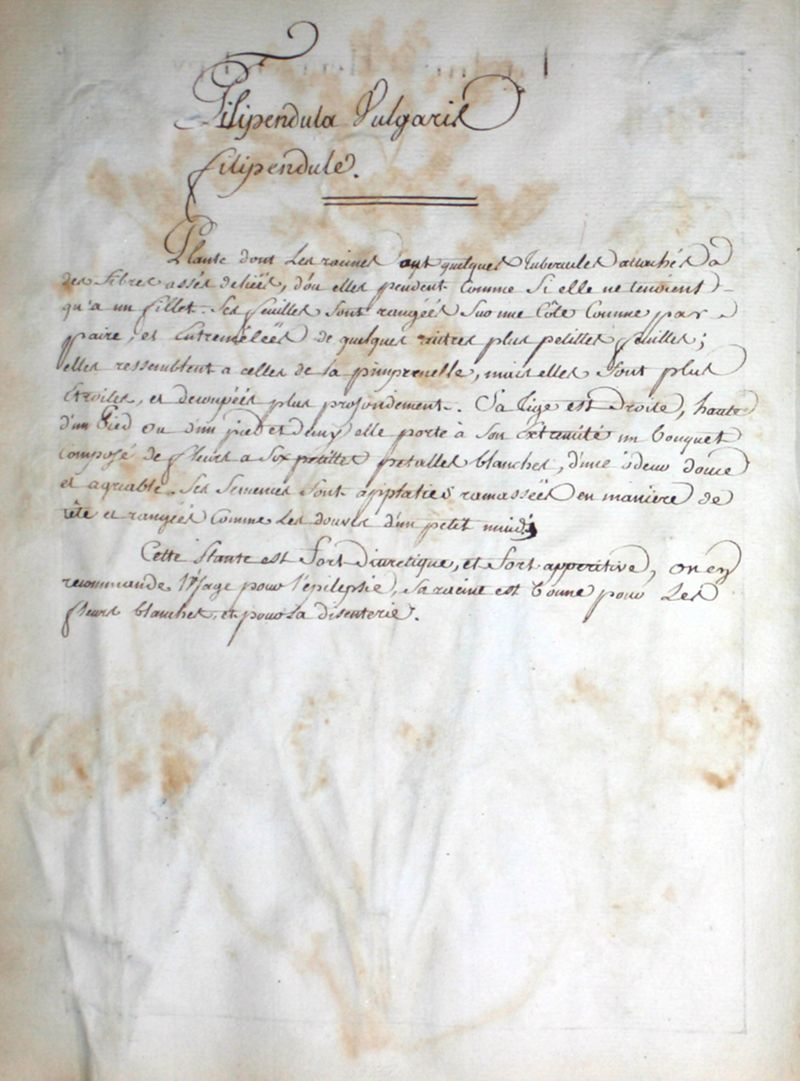 Filipendula Vulgaris
filipendule.
Plante dont les racines ont quelques tubercules attachés a
des fibres assés deliés, d'ou elles pendent comme si elle ne tenoient
qu'a un fillet. Ses feuilles sont rangées sur une Côte comme par
paire, et Entremêlées de quelques autres plus petittes feuilles;
elles ressemblent a celles de la pimprenelle, mais elles sont plus
Etroites, et decoupées plus profondement. Sa Tige est Droite, haute
d'un Pied ou d'un pied et demy elle porte à son Extremité un bouquet
Composé de fleurs a six petittes petalles blanches, d'une odeur douce
et agreable. Ses semences sont applaties ramassées en manière de
tête et rangées comme les douves d'un petit muid.
Cette Plante est fort Diuretique, et fort apperitive, on en
recommande l'usage pour l'epilepsie, sa racine est bonne pour Les
fleurs blanches, et pour la disenterie.